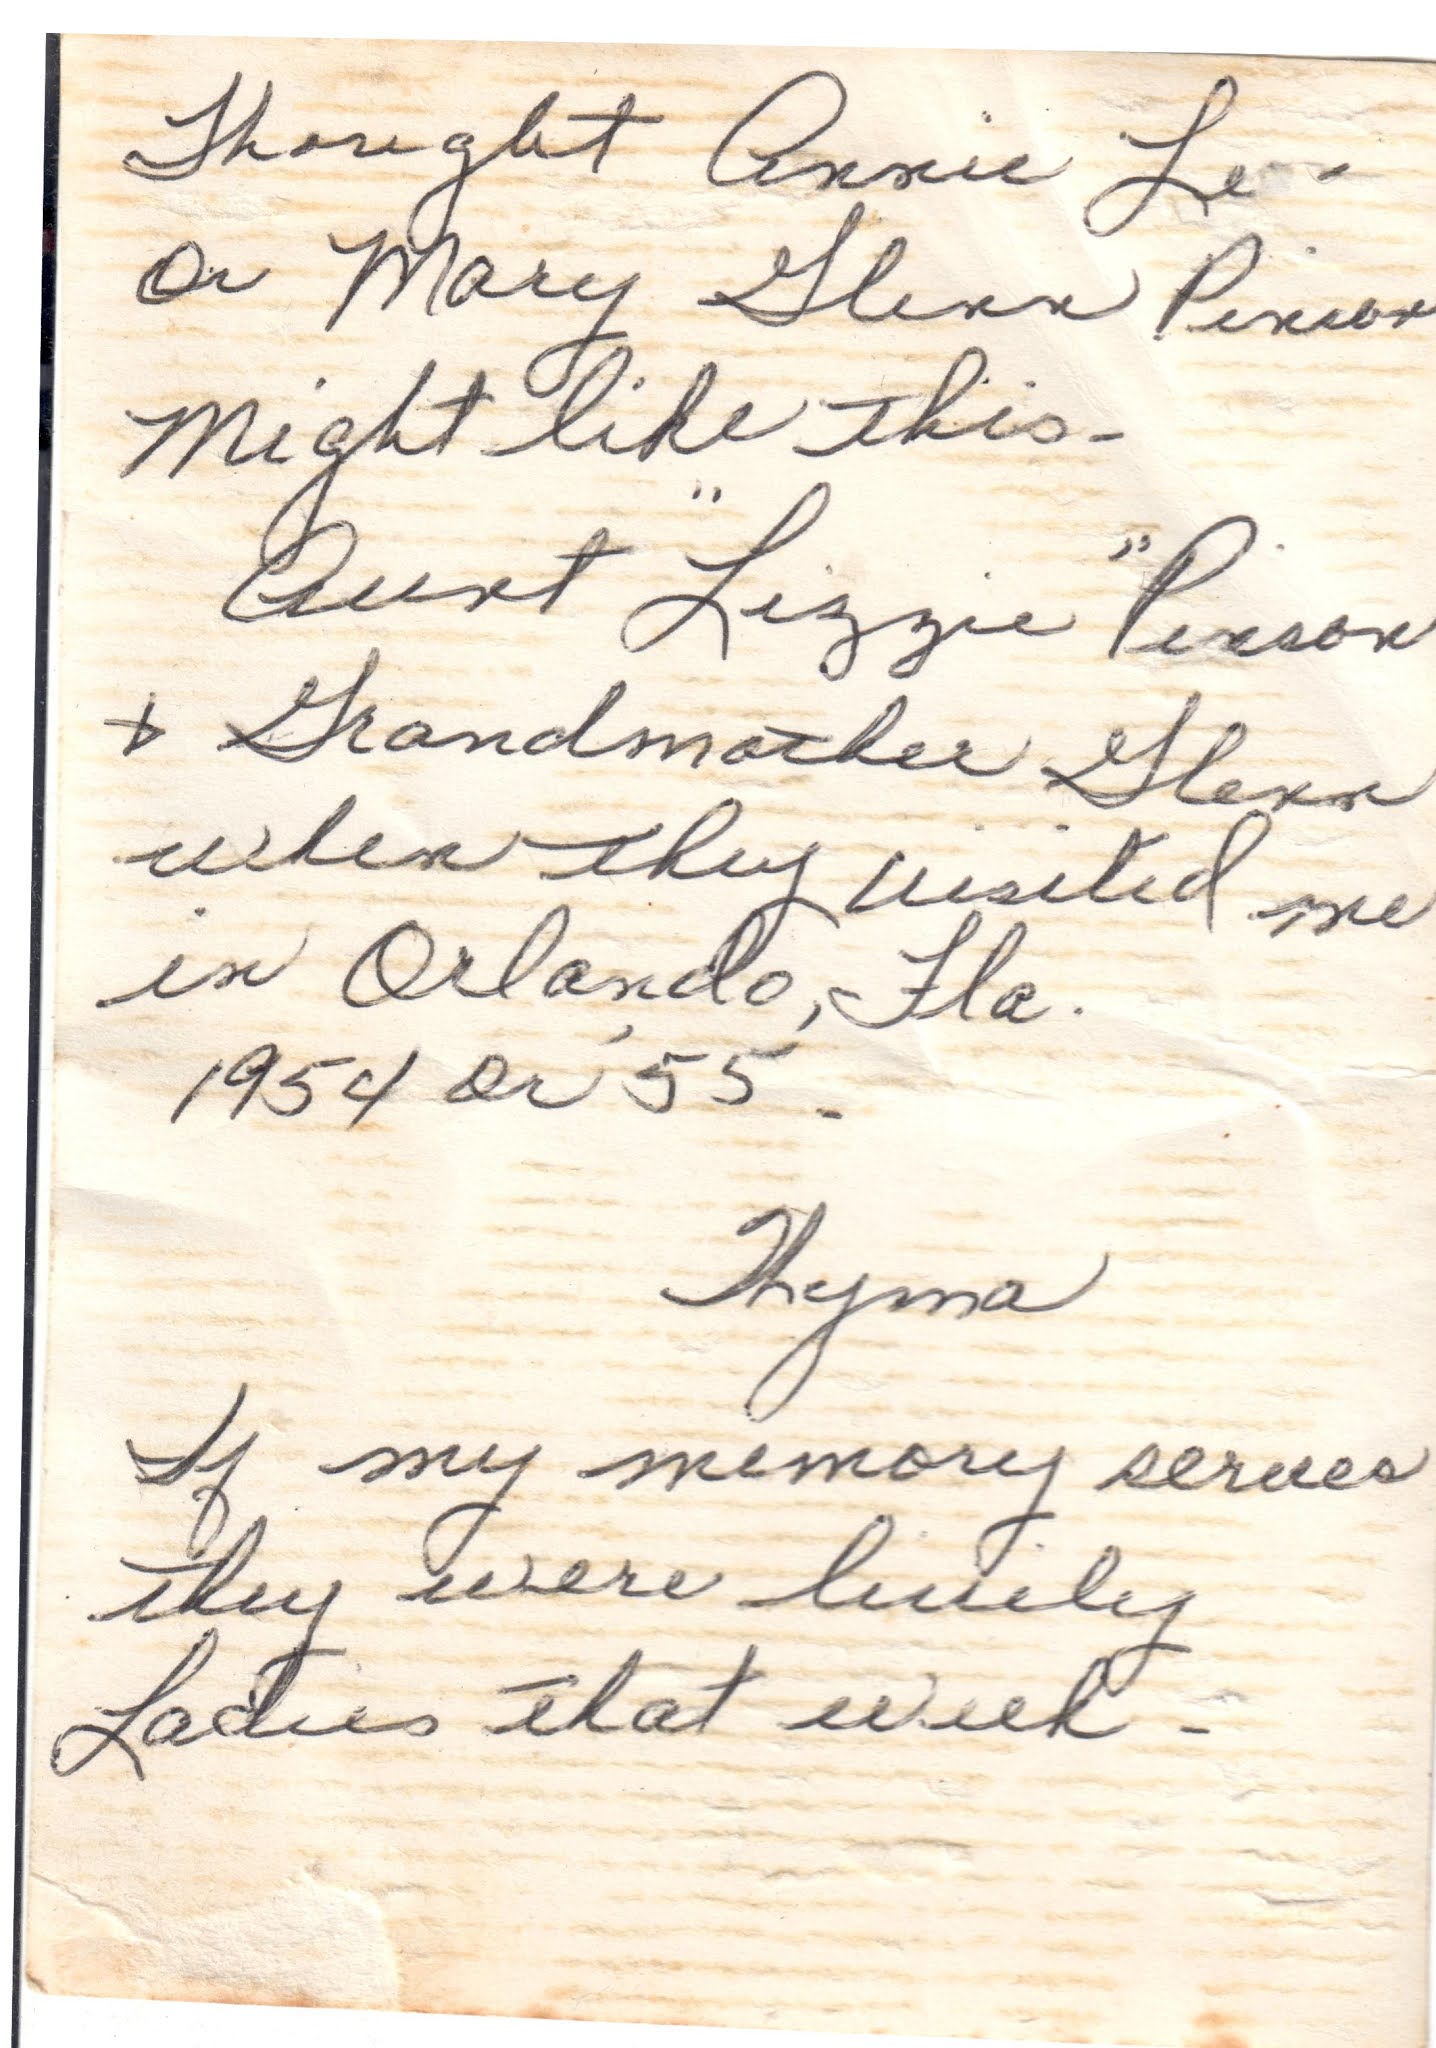 Thought Annie Le-
or Mary Glenn Pinson
Might like this-
Aunt "Lizzie" Pinson
+ Grandmother Glenn
when they visited me
in Orlando, Fla.
1954 or '55.
Thyma
If my memory serves
they were lively
Ladies that week -